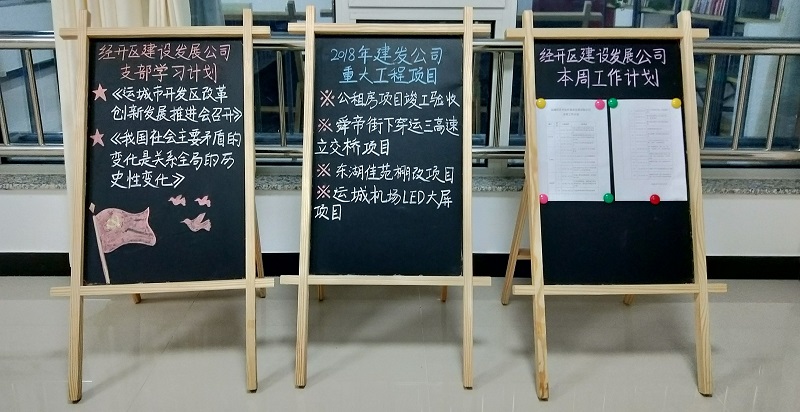 经开区建设发展公司
支部学习计划
★《运城市开发区改革
创新发展推进会召开》
★《我国社会主要矛盾的
变化是关系全局的历
史性变化》
2018年建发公司
重大工程项目
※公租房项目竣工验收
※舜帝街下穿运三高速
立交桥项目
※东湖佳苑棚改项目
※运城机场LED大屏
项目
经开区建设发展公司
本周工作计划